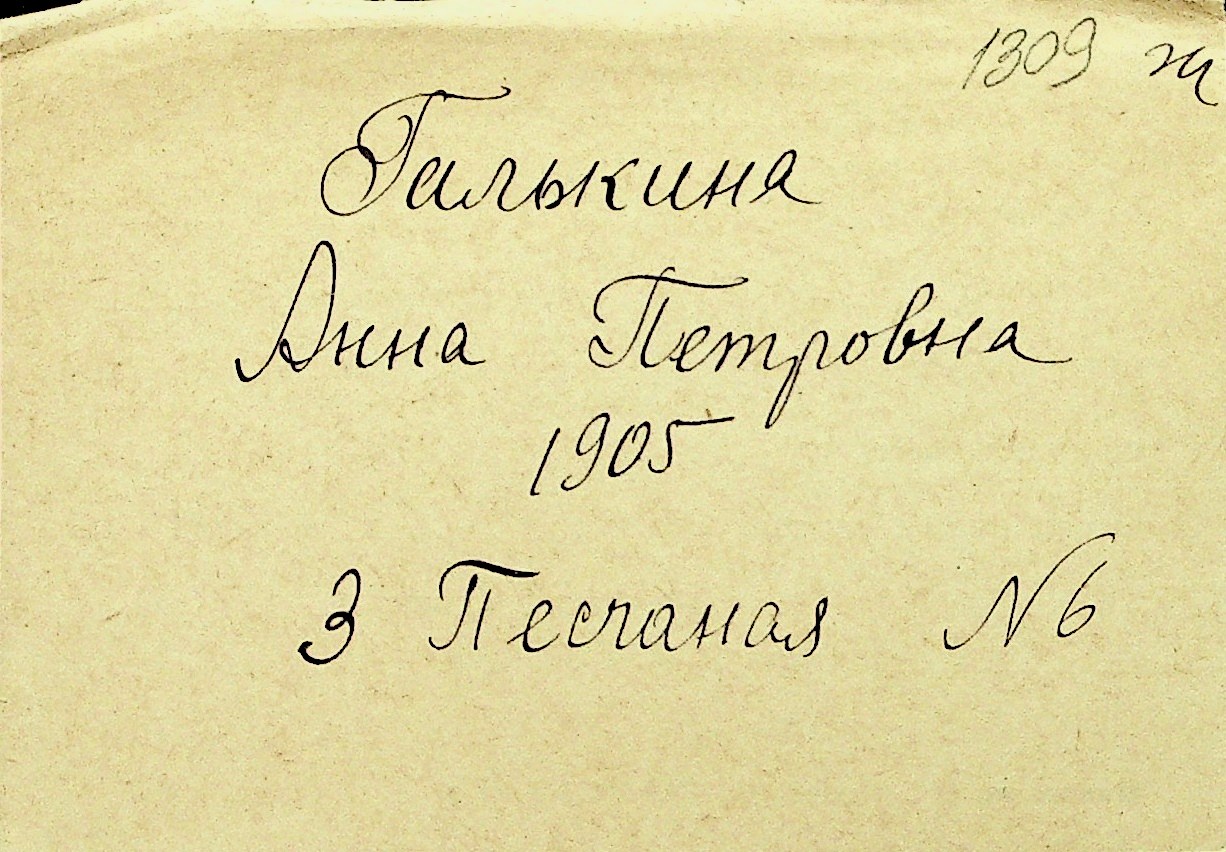 1309 ж
Галькина
Анна Петровна
1905
3 Песчаная N 6